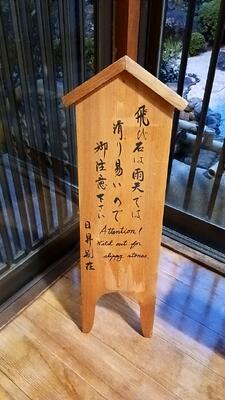 飛び石は雨天では
滑り易いので
御注意下さい
Attention!
Watch out for
slippy stones.
日昇別荘